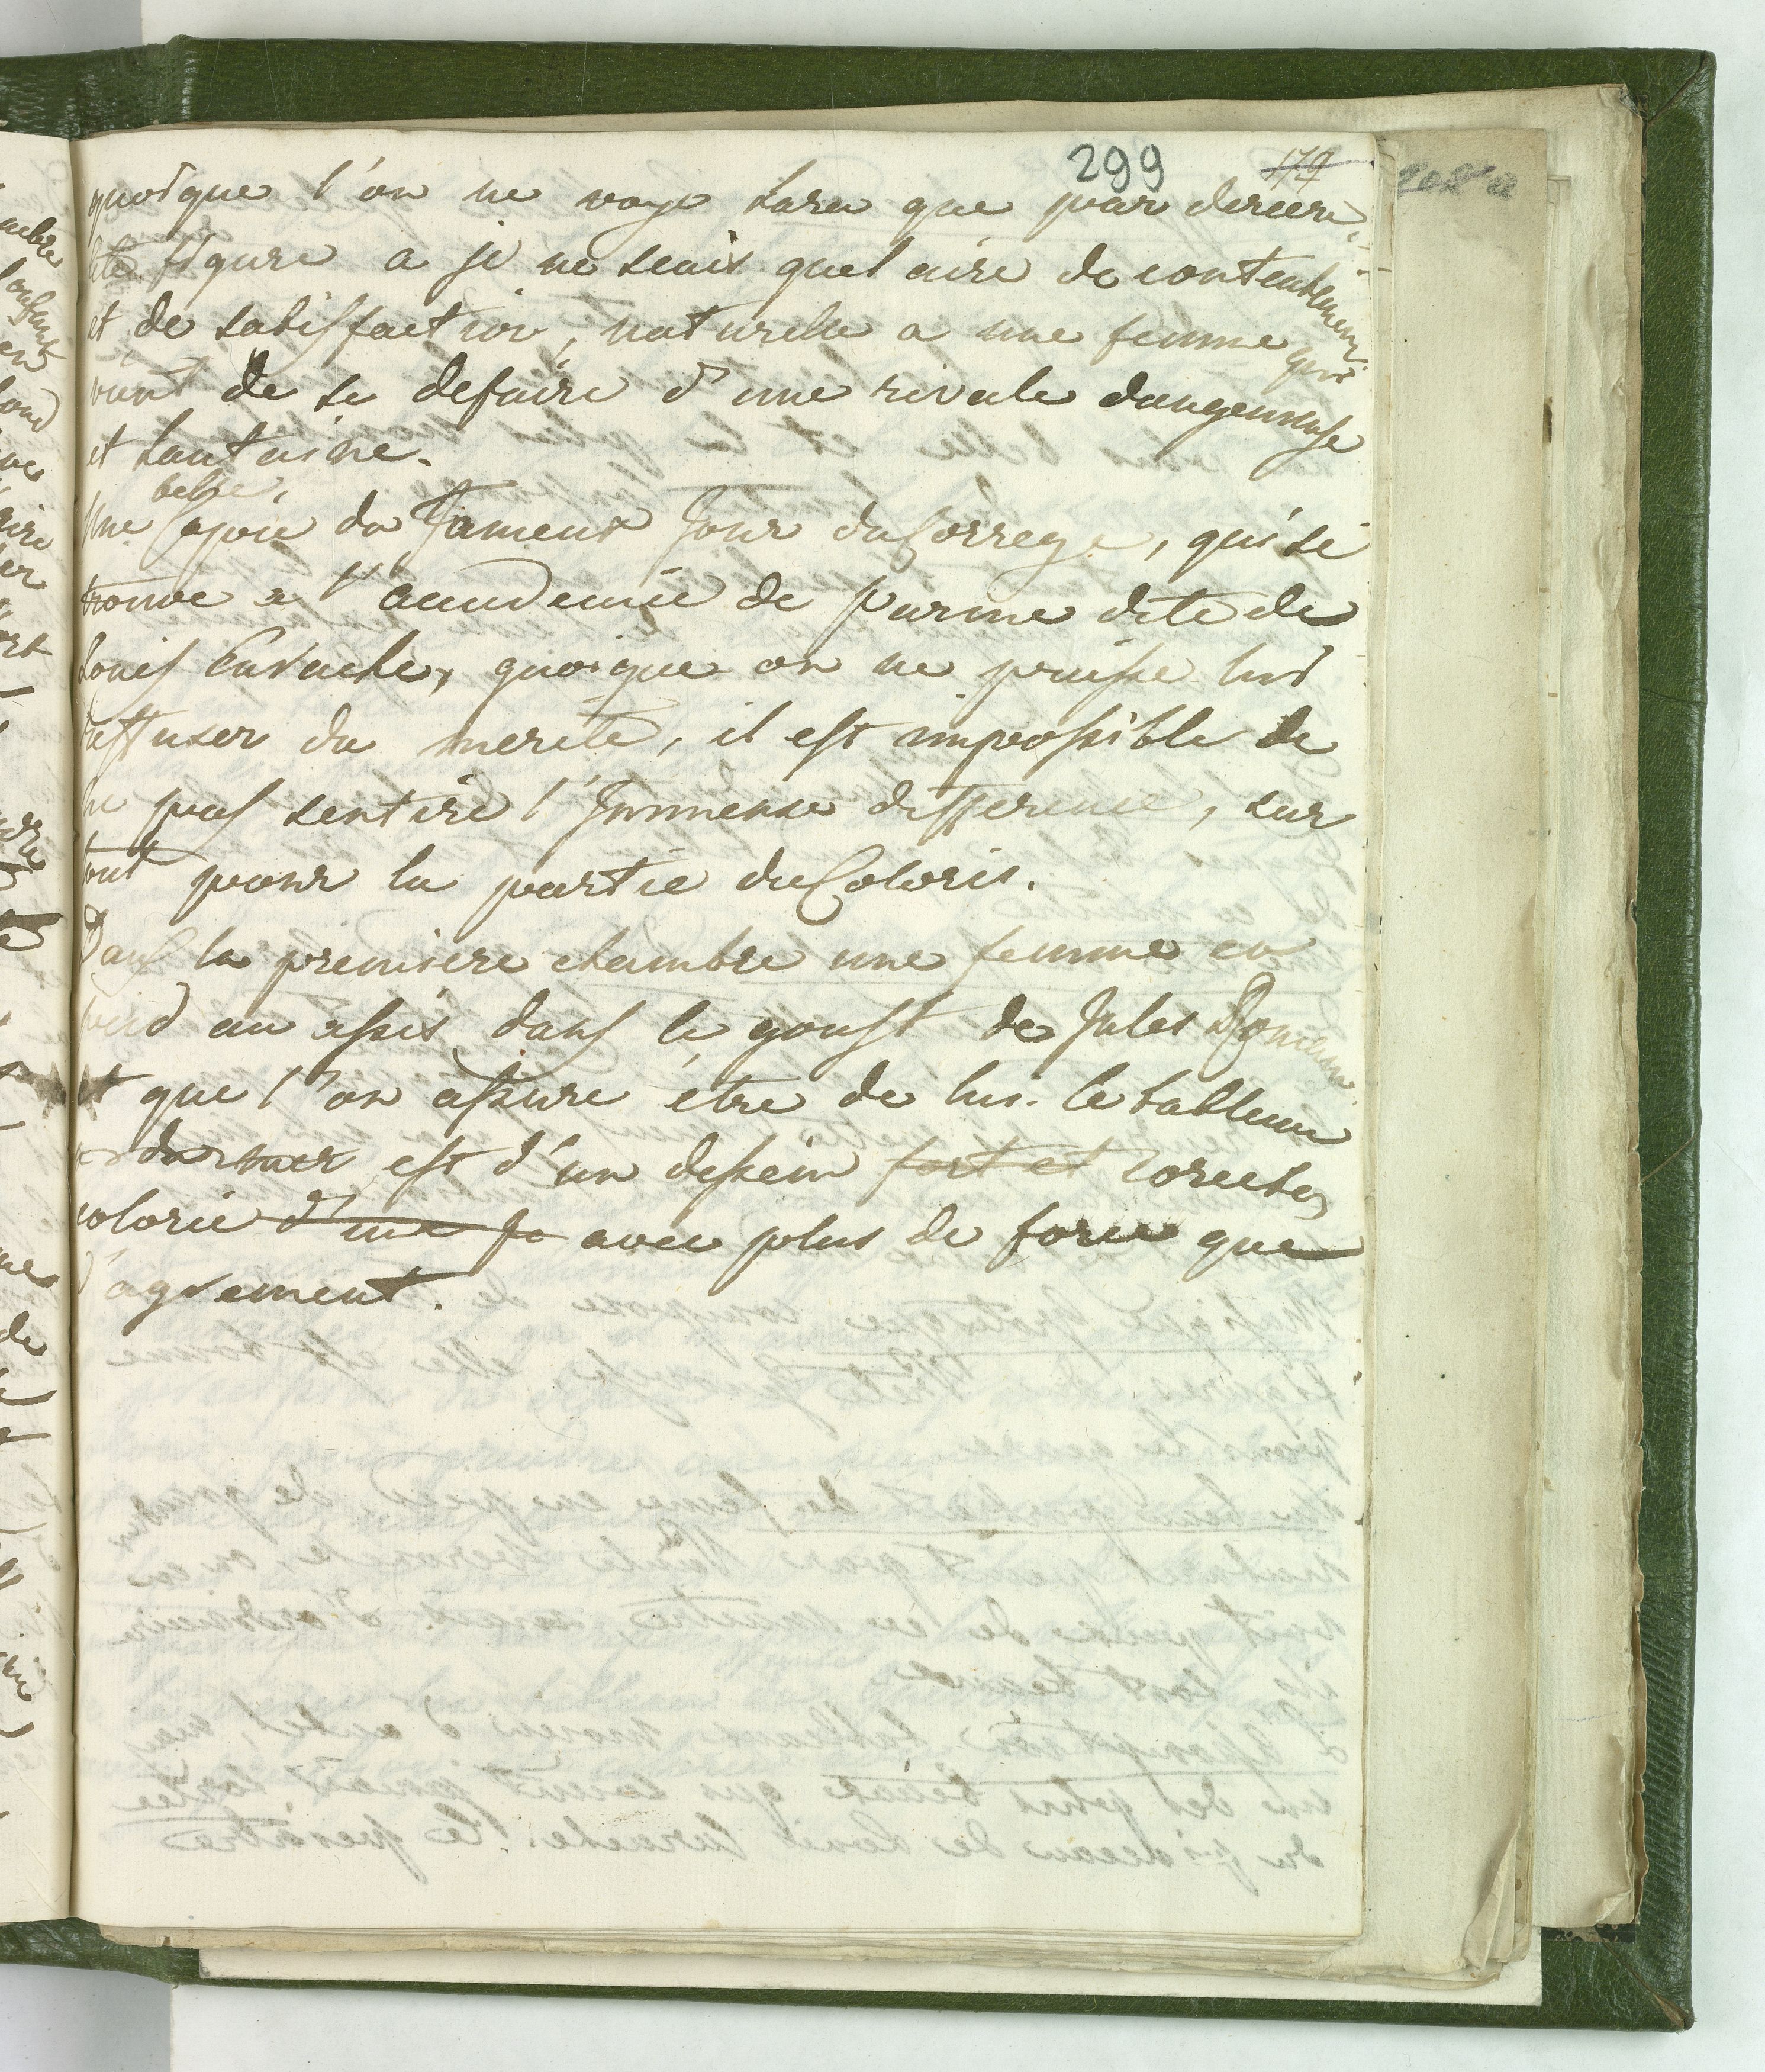 299 179
quoique l'on ne voye Sara que par deriere,
cete figure a je ne scais quel aire de contentement
et de satisfaction, naturelle a une femme qui
vient de se defaire d'une rivale dangereuse
et hautaine.
belle,
Une copie du Fameux Jour du Correge, qui se
trouve a l'academie de parme dite de
Louis Carache, quoique on ne puisse lui
reffuser du merite, il est impossible de
ne pas sentire l'Immense difference, sur
tout pour la partie du Coloris.
Dans la premiere chambre une femme en
pied au assis dans le goust de Jules Romain
et que l'on assure être de lui. le tableau
est d'un dessein fort et corecte,
colorié d'une fo avec plus de force que
d'agrement.